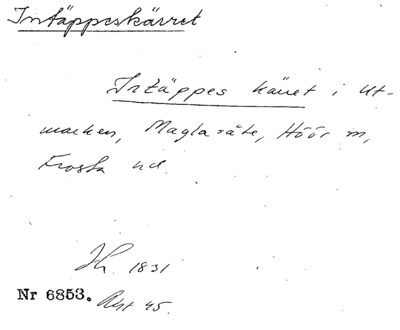 Intäppeskärret
Intäppes käret i Ut-
marken, Maglasäte, Höör sn,
Frosta hd.
1831
Nr 6853. Akt 45.